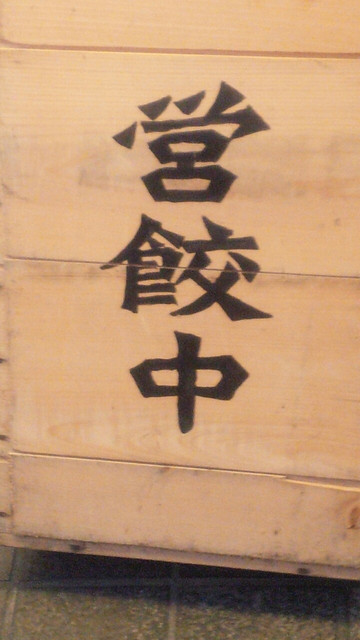 営餃中